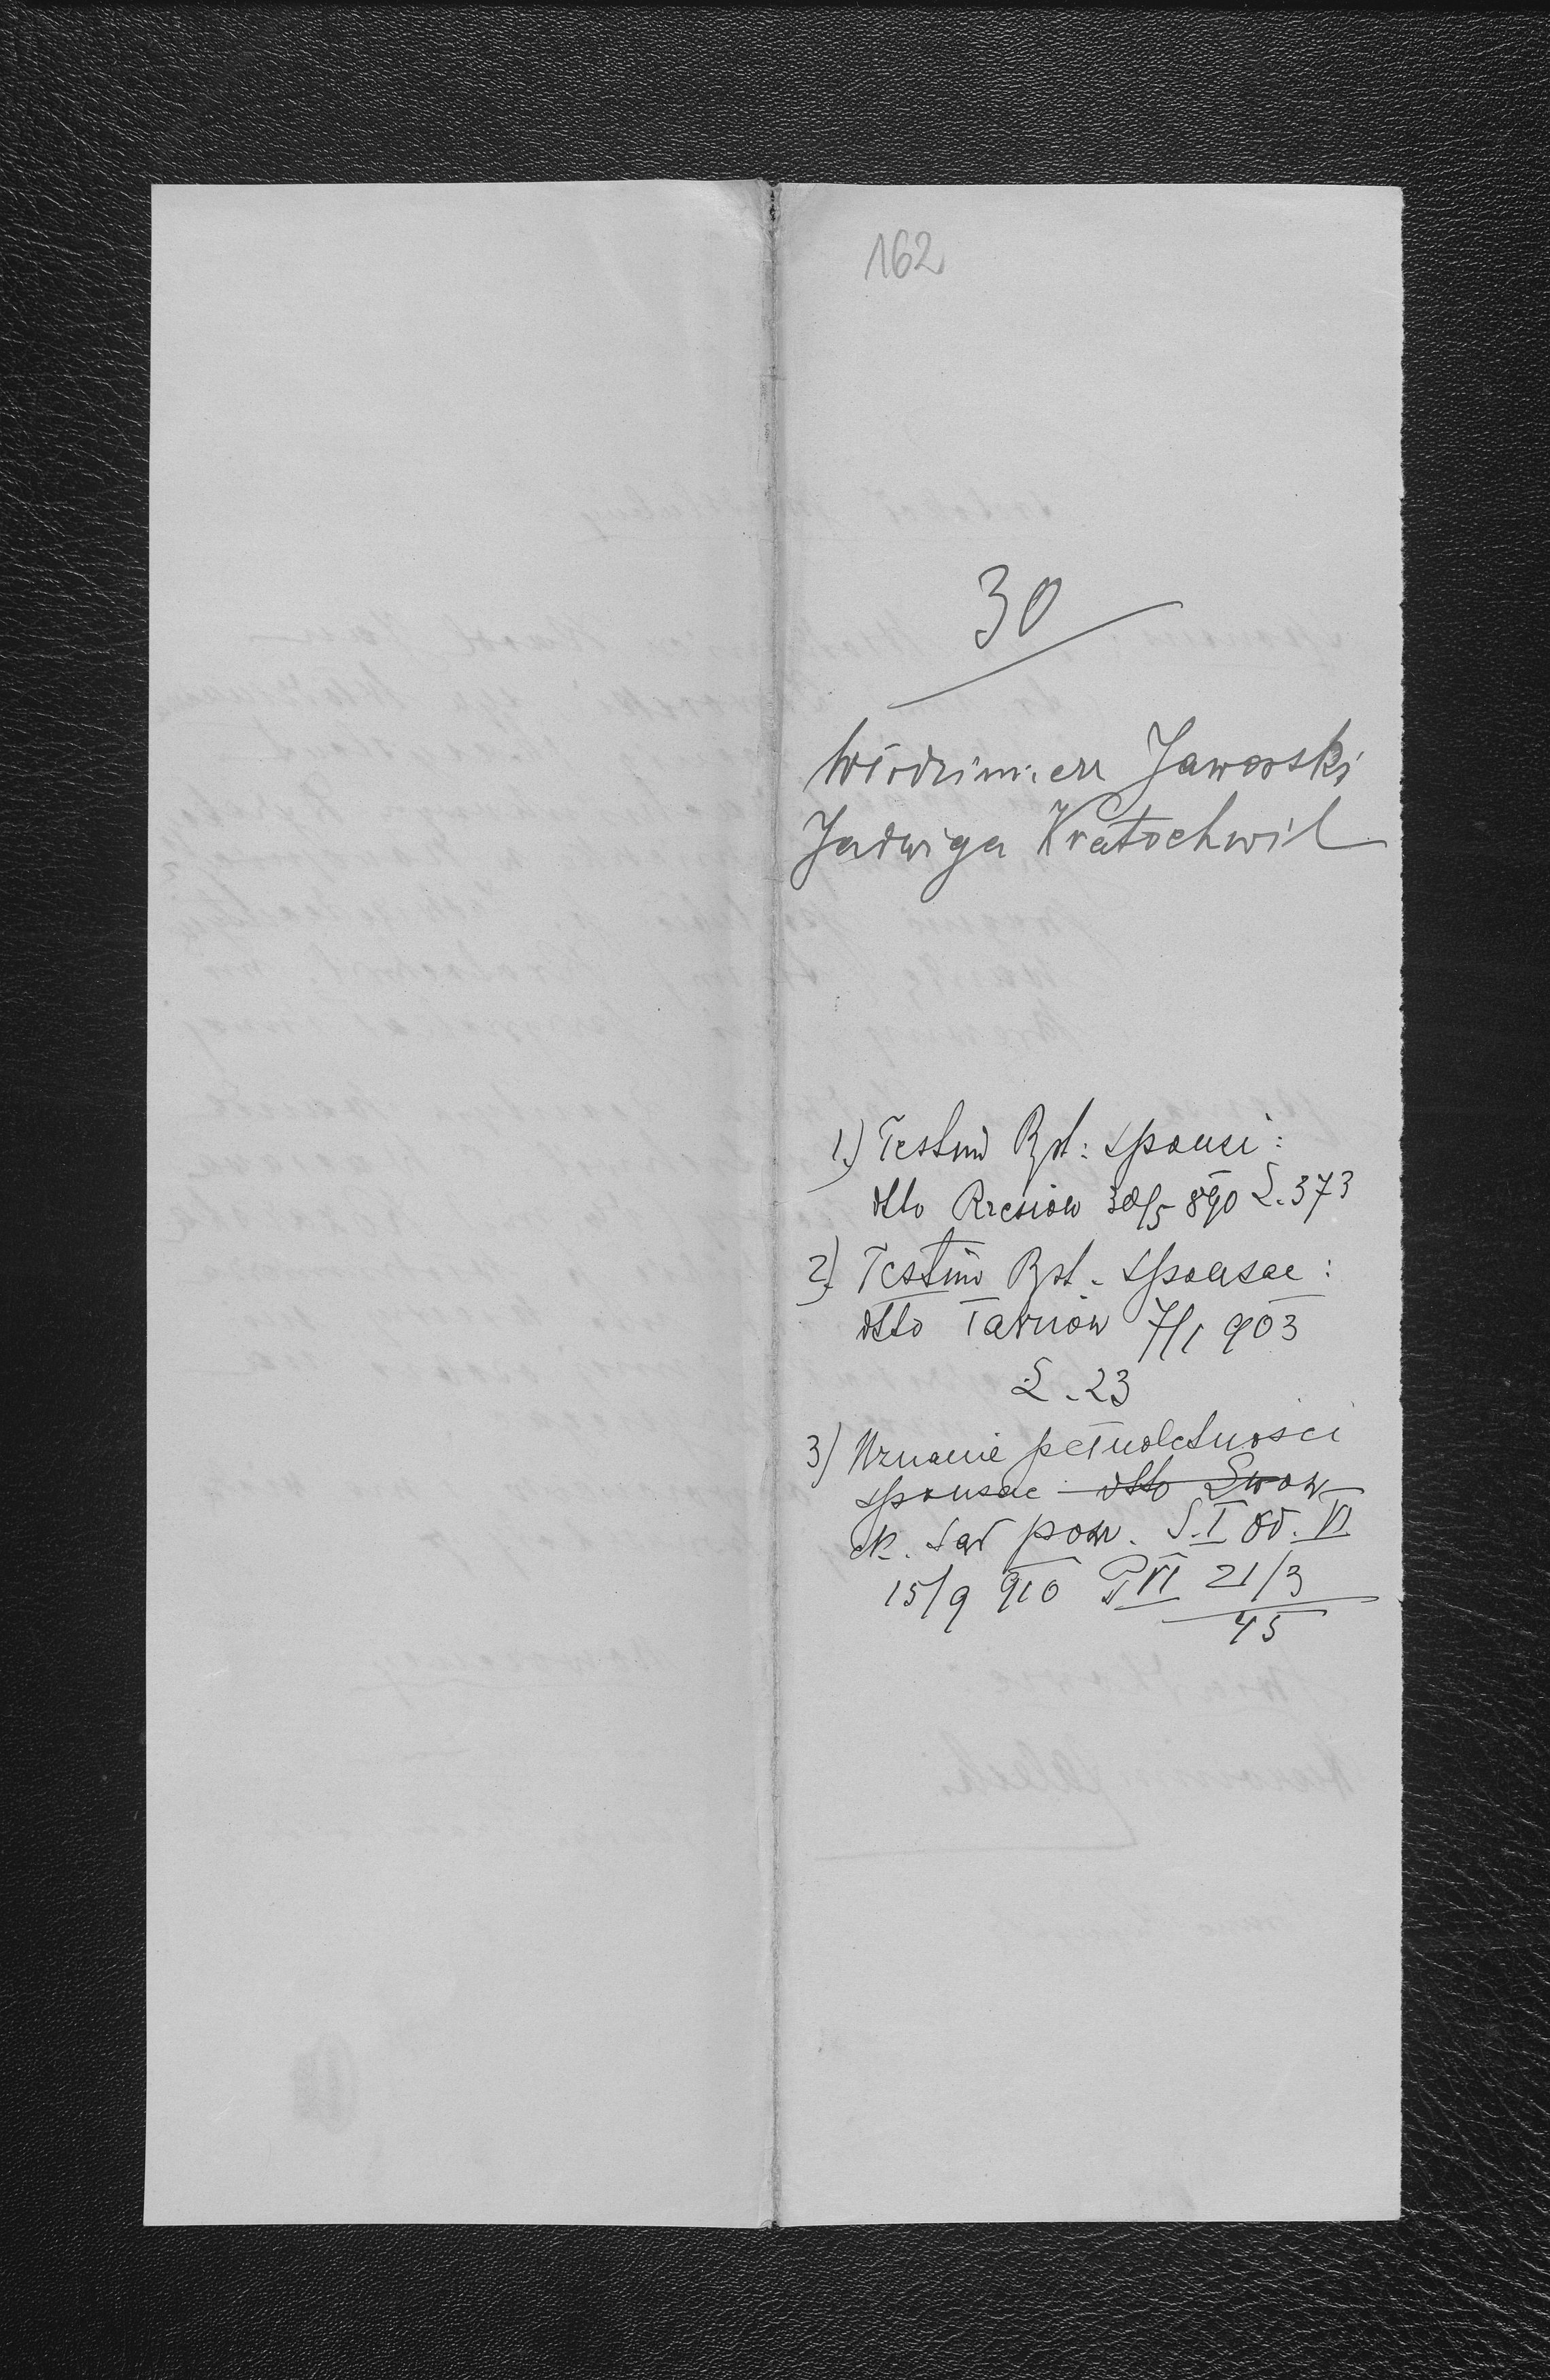 162
30
Włodzimierz Jaworski
Jadwiga Kratochwil
1.) Testim Bpt: sponsi:
dtto Rzeszów 30/5 890 L. 373
2) Testim Bpt. sponsae:
dtto Tarnów 7/1 903
L. 23
3) Uznanie pełnoletności
sponsae dtto Lwow
ck. Sąd pow. S. I Od. VI
15/9 910 P VI 21/3
45